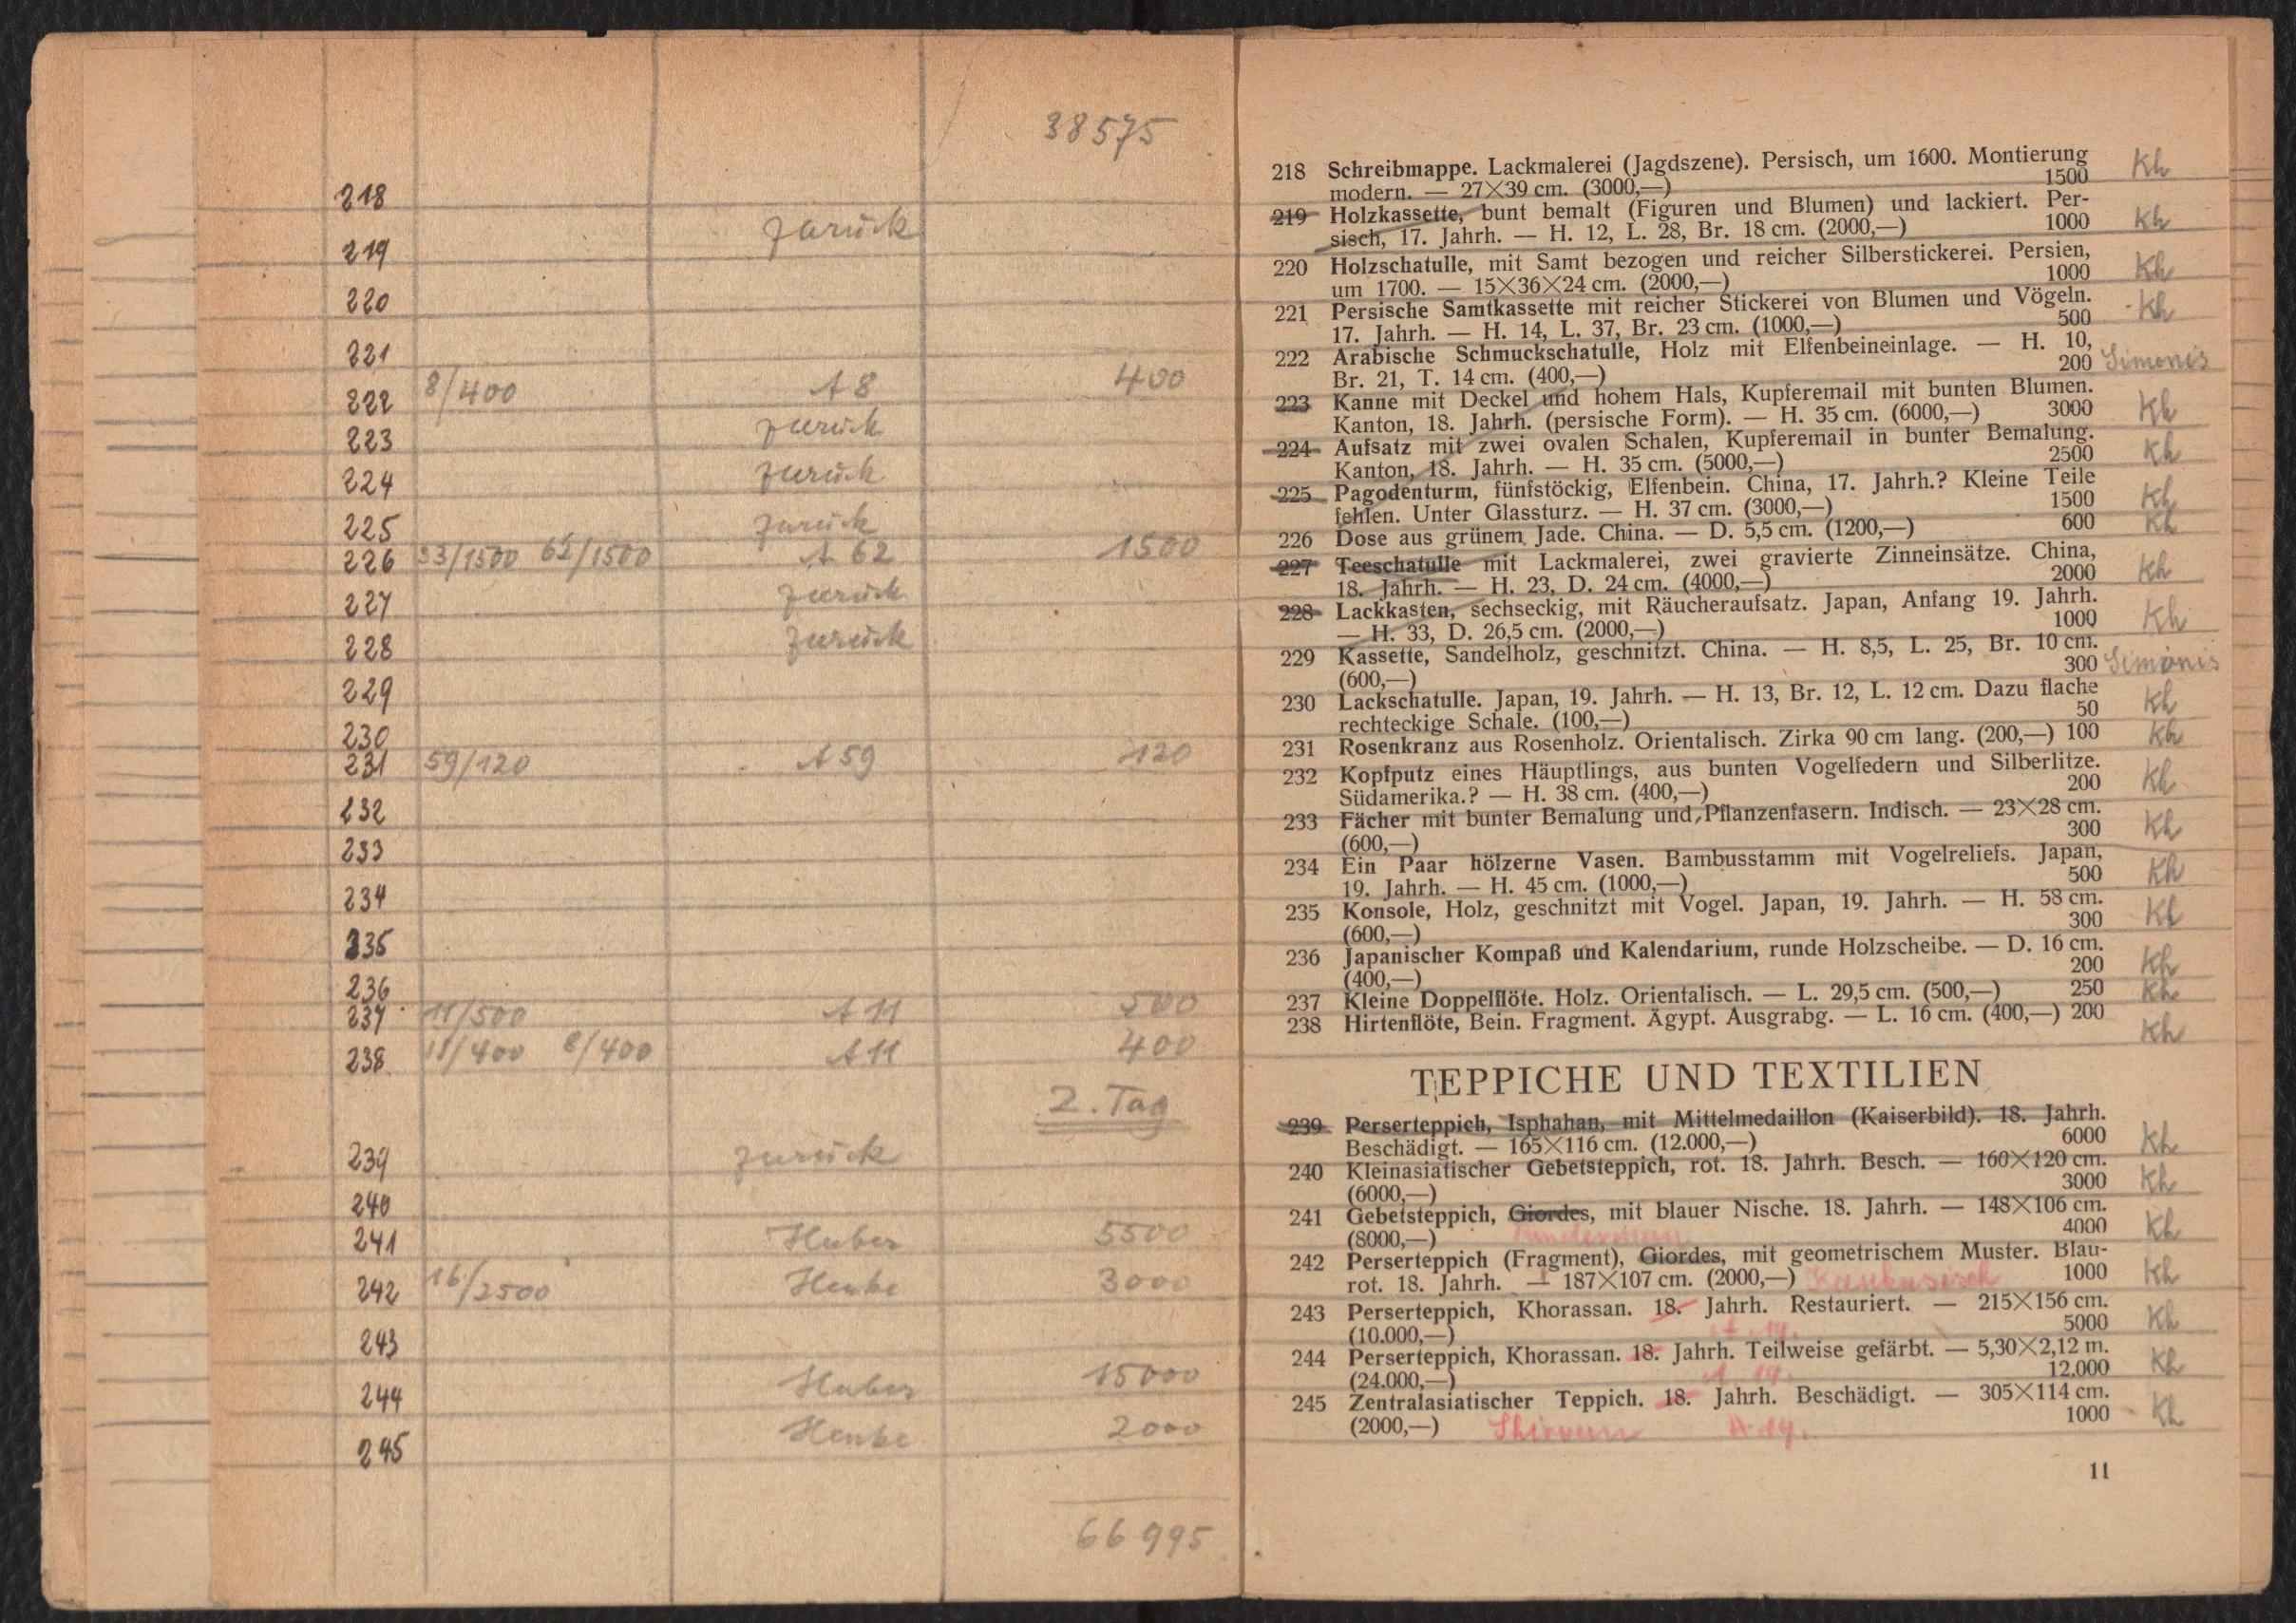 38575
218
zurück
219
220
221
222 8/400 A 8 400
223 zurück
224 zurück
225 zurück
226 33/1500 62/1500 A 62 1500
227 zurück
228 zurück
229
230
231 59/120 A 59 120
232
233
234
235
236
237 11/500 A 11 500
238 11/400 8/400 A 11 400
2. Tag
239 zurück
240
241 Huber 5500
242 16/2500 3000
243
244 Huber 15000
245 2000
66995
218 Schreibmappe. Lackmalerei (Jagdszene). Persisch, um 1600. Montierung Kh
modern. — 27×39 cm. (3000,—) 1500
219 Holzkassette, bunt bemalt (Figuren und Blumen) und lackiert. Per-
sisch, 17. Jahrh. — H. 12, L. 28, Br. 18 cm. (2000,—) 1000 Kh
220 Holzschatulle, mit Samt bezogen und reicher Silberstickerei. Persien,
um 1700. — 15×36×24 cm. (2000,—) 1000 Kh
221 Persische Samtkassette mit reicher Stickerei von Blumen und Vögeln.
17. Jahrh. — H. 14, L. 37, Br. 23 cm. (1000,—) 500 Kh
222 Arabische Schmuckschatulle, Holz mit Elfenbeineinlage. — H. 10,
Br. 21, T. 14 cm. (400,—) 200 Simonis
223 Kanne mit Deckel und hohem Hals, Kupferemail mit bunten Blumen.
Kanton, 18. Jahrh. (persische Form). — H. 35 cm. (6000,—) 3000 Kh
224 Aufsatz mit zwei ovalen Schalen, Kupferemail in bunter Bemalung.
Kanton, 18. Jahrh. — H. 35 cm. (5000,—) 2500 Kh
225 Pagodenturm, fünfstöckig, Elfenbein. China, 17. Jahrh.? Kleine Teile
fehlen. Unter Glassturz. — H. 37 cm. (3000,—) 1500 Kh
226 Dose aus grünem Jade. China. — D. 5,5 cm. (1200,—) 600 Kh
227 Teeschatulle mit Lackmalerei, zwei gravierte Zinneinsätze. China,
18. Jahrh. — H. 23, D. 24 cm. (4000,—) 2000 Kh
228 Lackkasten, sechseckig, mit Räucheraufsatz. Japan, Anfang 19. Jahrh.
— H. 33, D. 26,5 cm. (2000,—) 1000 Kh
229 Kassette, Sandelholz, geschnitzt. China. — H. 8,5, L. 25, Br. 10 cm.
(600,—) 300 Simonis
230 Lackschatulle. Japan, 19. Jahrh. — H. 13, Br. 12, L. 12 cm. Dazu flache
rechteckige Schale. (100,—) 50 Kh
231 Rosenkranz aus Rosenholz. Orientalisch. Zirka 90 cm lang. (200,—) 100 Kh
232 Kopfputz eines Häuptlings, aus bunten Vogelfedern und Silberlitze.
Südamerika.? — H. 38 cm. (400,—) 200 Kh
233 Fächer mit bunter Bemalung und Pflanzenfasern. Indisch. — 23×28 cm.
(600,—) 300 Kh
234 Ein Paar hölzerne Vasen. Bambusstamm mit Vogelreliefs. Japan,
19. Jahrh. — H. 45 cm. (1000,—) 500 Kh
235 Konsole, Holz, geschnitzt mit Vogel. Japan, 19. Jahrh. — H. 58 cm.
(600,—) 300 Kh
236 Japanischer Kompaß und Kalendarium, runde Holzscheibe. — D. 16 cm.
(400,—) 200 Kh
237 Kleine Doppelflöte. Holz. Orientalisch. — L. 29,5 cm. (500,—) 250 Kh
238 Hirtenflöte, Bein. Fragment. Ägypt. Ausgrabg. — L. 16 cm. (400,—) 200 Kh
TEPPICHE UND TEXTILIEN
239 Perserteppich, Isphahan, mit Mittelmedaillon (Kaiserbild). 18. Jahrh.
Beschädigt. — 165×116 cm. (12.000,—) 6000 Kh
240 Kleinasiatischer Gebetsteppich, rot. 18. Jahrh. Besch. — 160×120 cm.
(6000,—) 3000 Kh
241 Gebetsteppich, Giordes, mit blauer Nische. 18. Jahrh. — 148×106 cm.
(8000,—) 4000 Kh
242 Perserteppich (Fragment), Giordes, mit geometrischem Muster. Blau-
rot. 18. Jahrh. — 187×107 cm. (2000,—) Kaukasisch 1000 Kh
243 Perserteppich, Khorassan. 18. Jahrh. Restauriert. — 215×156 cm.
(10.000,—) A. 19. 5000 Kh
244 Perserteppich, Khorassan. 18. Jahrh. Teilweise gefärbt. — 5,30×2,12 m.
(24.000,—) A. 19. 12.000 Kh
245 Zentralasiatischer Teppich. 18. Jahrh. Beschädigt. — 305×114 cm.
(2000,—) Shirwan A 19. 1000 Kh
11